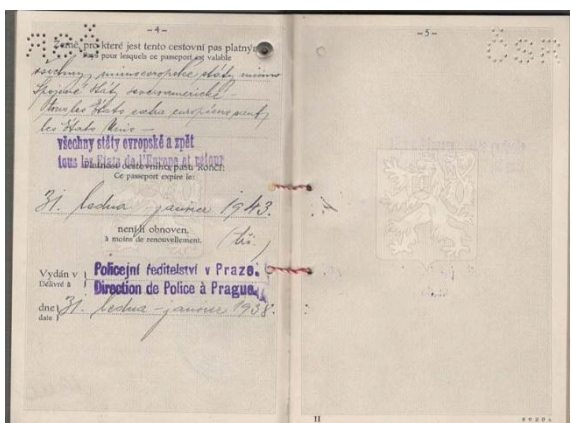 -4-
Země, pro které jest tento cestovní pas platný:
Pays pour lesquels ce passeport est valable
všechny mimoevropské státy mimo
Spojené Státy severoamerické.
Tous les États extra européens sauf
les États Unis —
všechny státy evropské a zpět
tous les Etats de l'Europe et retour
Platnost cestovního pasu končí:
Ce passeport expire le:
31. ledna - janvier 1943.
není-li obnoven.
à moins de renouvellement.
Vydán v
Délivré à
Policejní ředitelství v Praze.
Direction de Police à Prague.
dne
date
31. ledna - janvier 1938.
-5-
ČSR
II